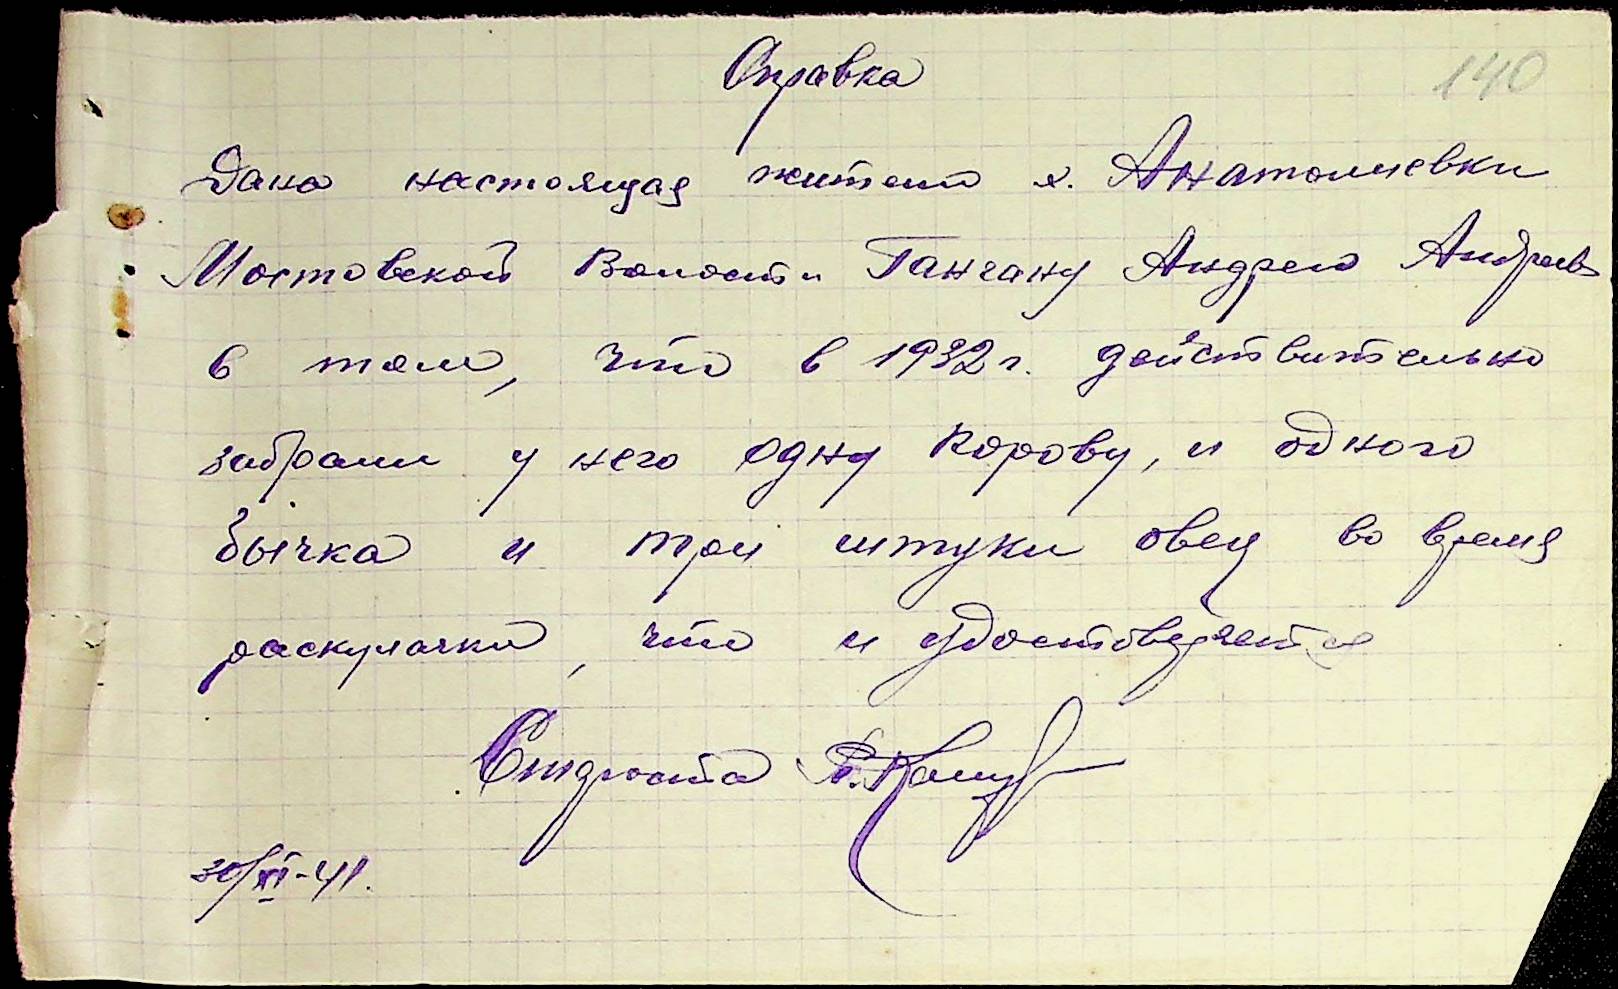 Справка
140
Дана настоящая жителю х. Анатолиевки
Мостовской Волости Ганчану Андрею Андреев
в том, что в 1932 г. действительно
забрали у него одну корову, и одного
бычка и три штуки овец во время
раскулачки, что и удостоверяется
Староста
30/XI-41.